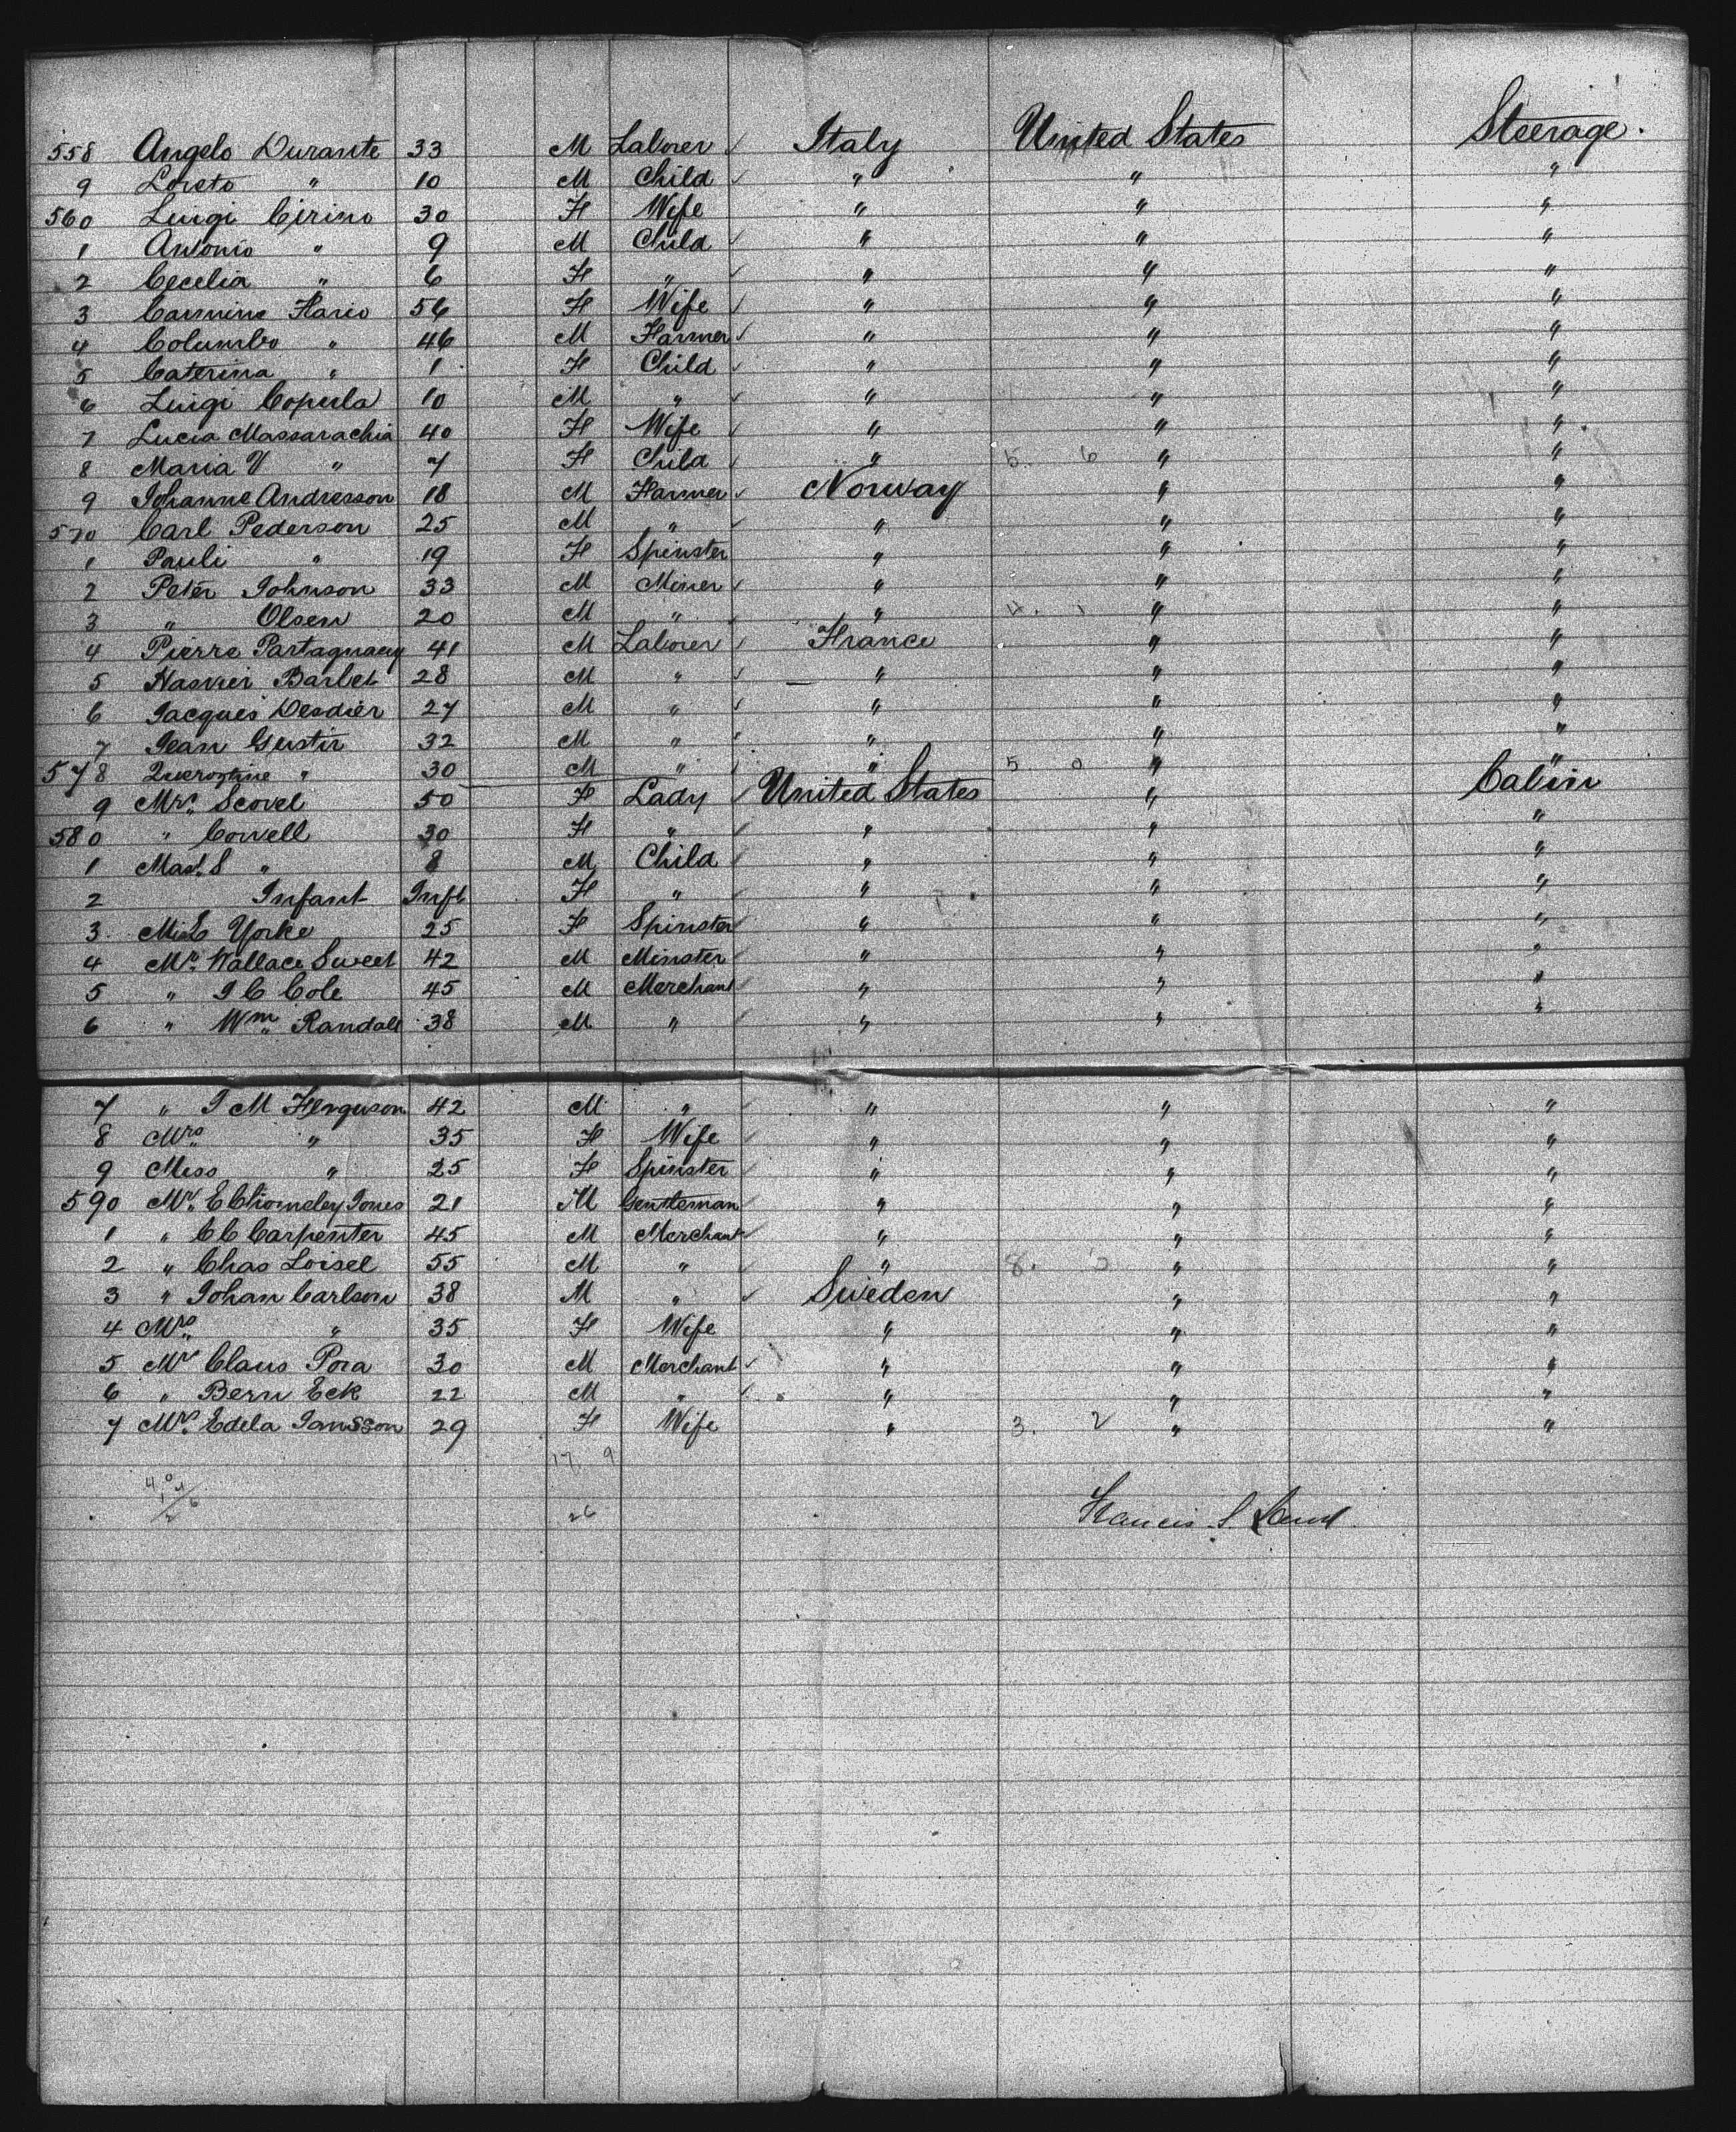 558 Angelo Durante 33 M Laborer ✓ Italy United States Steerage.
9 Loreto " 10 M Child ✓ " " "
560 Luigi Cirino 30 F Wife " " "
1 Antonio " 9 M Child ✓ " " "
2 Cecelia " 6 F " ✓ " " "
3 Carmine Flario 56 F Wife ✓ " " "
4 Columbo " 46 M Farmer ✓ " " "
5 Caterina " 1 F Child ✓ " " "
6 Luigi Coperla 10 M " ✓ " " "
7 Lucia Massarachia 40 F Wife ✓ " " "
8 Maria V " 7 F Child ✓ " 5. 6 " "
9 Johanne Andresson 18 M Farmer ✓ Norway " "
570 Carl Pederson 25 M " ✓ " " "
1 Pauli " 19 F Spinster " " "
2 Peter Johnson 33 M Miner ✓ " " "
3 " Olsen 20 M " ✓ " 4. 1 " "
4 Pierre 41 M Laborer ✓ France " "
5 Barbet 28 M " ✓ " " "
6 Jacques Desdier 27 M " ✓ " " "
7 Jean Gustir 32 M " ✓ " " "
578 " 30 M " ✓ " 5 0 " "
9 Mrs. Scovel 50 F Lady ✓ United States " Cabin
580 " Cowell 30 F " ✓ " " "
1 Mast. S " 8 M Child ✓ " " "
2 Infant Inft F " ✓ " " "
3 Miss Yorke 25 F Spinster ✓ " " "
4 Mr. Wallace Sweet 42 M Minster ✓ " " "
5 " J C Cole 45 M Merchant ✓ " " "
6 " Wm Randall 38 M " ✓ " " "
7 " J M Ferguson 42 M " ✓ " " "
8 Mrs " 35 F Wife ✓ " " "
9 Miss " 25 F Spinster ✓ " " "
590 Mr. E Chiomeley Jones 21 M Gentleman ✓ " " "
1 " C C Carpenter 45 M Merchant ✓ " " "
2 " Chas Loisel 55 M " ✓ " 8. " "
3 " Johan Carlson 38 M " ✓ Sweden " "
4 Mrs " 35 F Wife " " "
5 Mr Claus Pora 30 M Merchant ✓ " " "
6 " Bern Eck 22 M " ✓ " " "
7 Mrs. Edela Jansson 29 F Wife " 3. 2 " "
17. 9
26
Francis S.